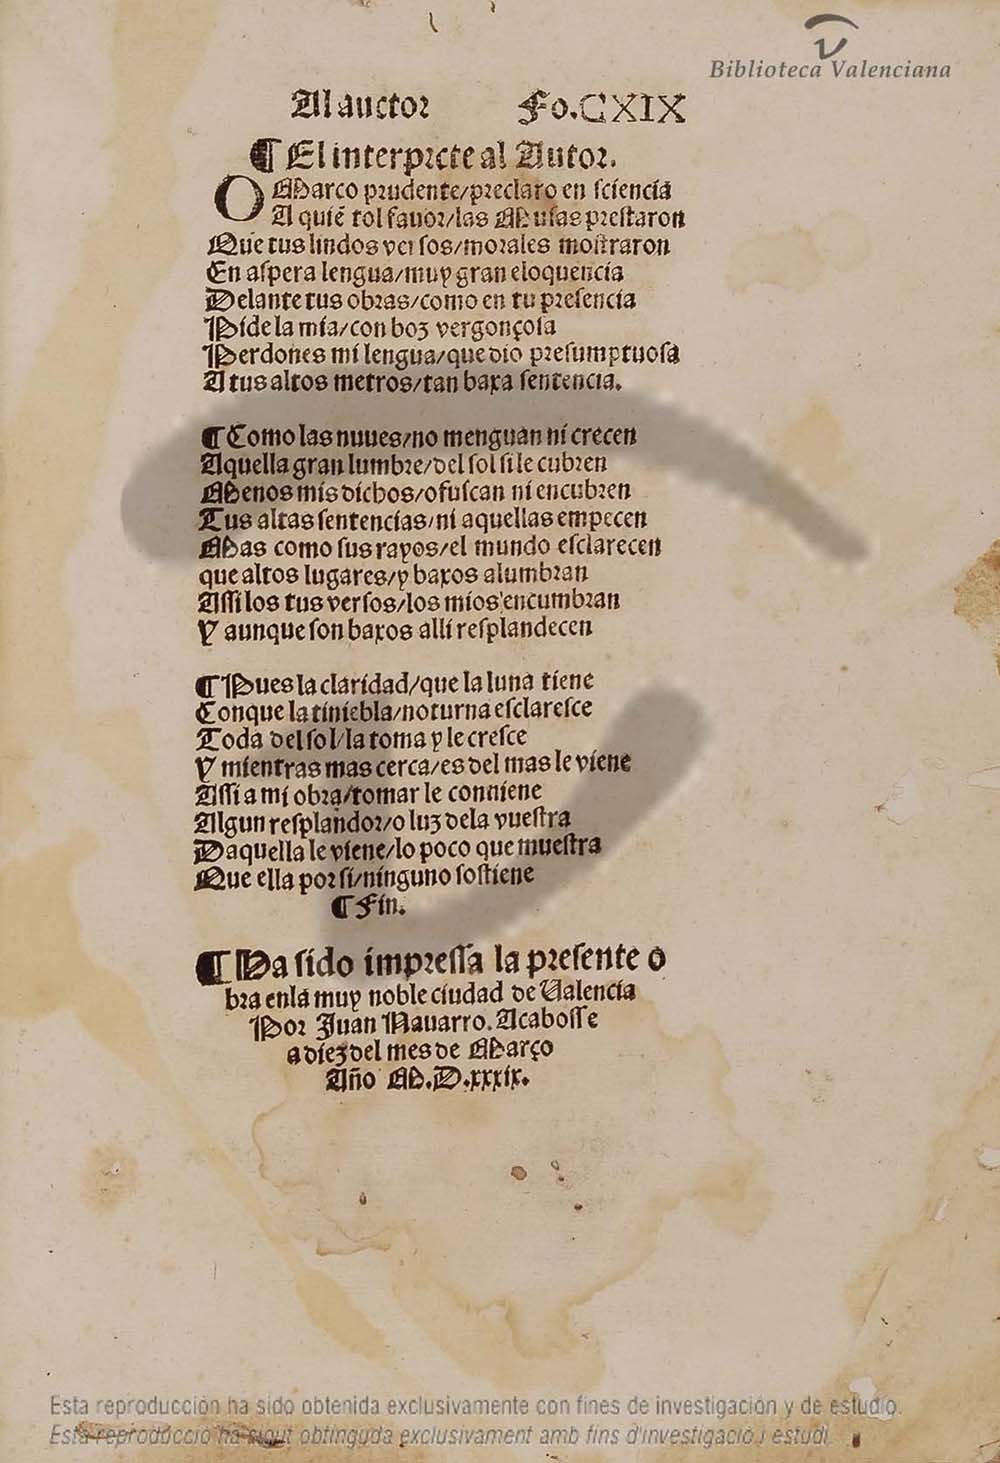 Biblioteca Valenciana
Al auctor Fo.CXIX
¶ El interprete al Autor.
O Marco prudente/preclaro en sciencia
A quiẽ tol fauor/las Musas prestaron
Que tus lindos versos/morales mostraron
En aspera lengua/muy gran eloquencia
Delante tus obras/como en tu presencia
Pide la mia/con boz vergonçosa
Perdones mi lengua/que dio presumptuosa
A tus altos metros/tan baxa sentencia.
¶ Como las nuues/no menguan ni crecen
Aquella gran lumbre/del sol si le cubren
Menos mis dichos/ofuscan ni encubren
Tus altas sentencias/ni aquellas empecen
Mas como sus rayos/el mundo esclarecen
que altos lugares/y baxos alumbran
Assi los tus versos/los mios encumbran
Y aunque son baxos alli resplandecen
¶ Pues la claridad/que la luna tiene
Conque la tiniebla/noturna esclaresce
Toda del sol/la toma y le cresce
Y mientras mas cerca/es del mas le viene
Assi a mi obra/tomar le conuiene
Algun resplandor/o luz dela vuestra
Daquella le viene/lo poco que muestra
Que ella por si/ninguno sostiene
¶ Fin.
¶ Ha sido impressa la presente o
bra enla muy noble ciudad de Valencia
Por Juan Nauarro. Acabosse
a diez del mes de Março
Año M.D.xxxix.
Esta reproducción ha sido obtenida exclusivamente con fines de investigación y de estudio.
Esta reproducció ha sigut obtinguda exclusivament amb fins d'investigació i estudi.